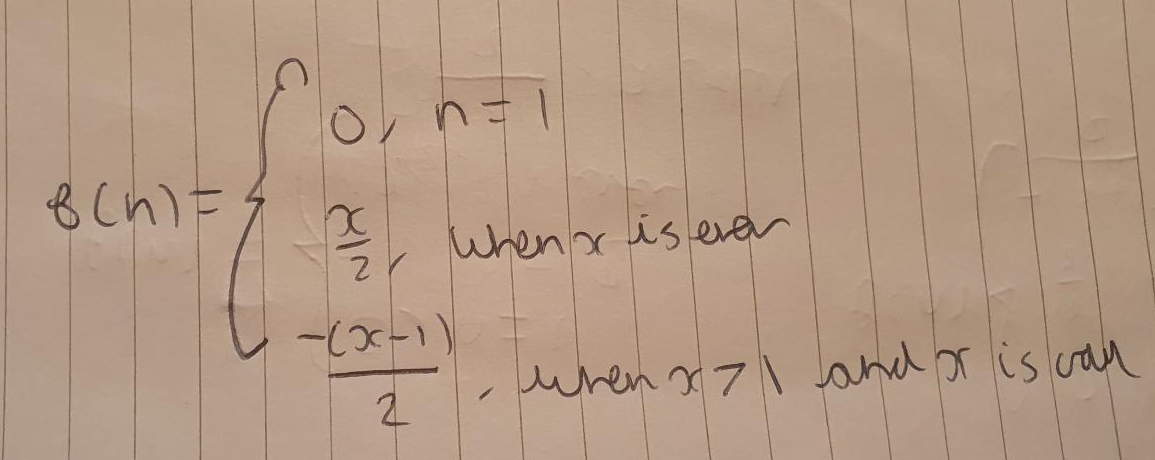 f(n) = { 0, n = 1
x/2, when x is even
-(x-1)/2, when x > 1 and x is odd